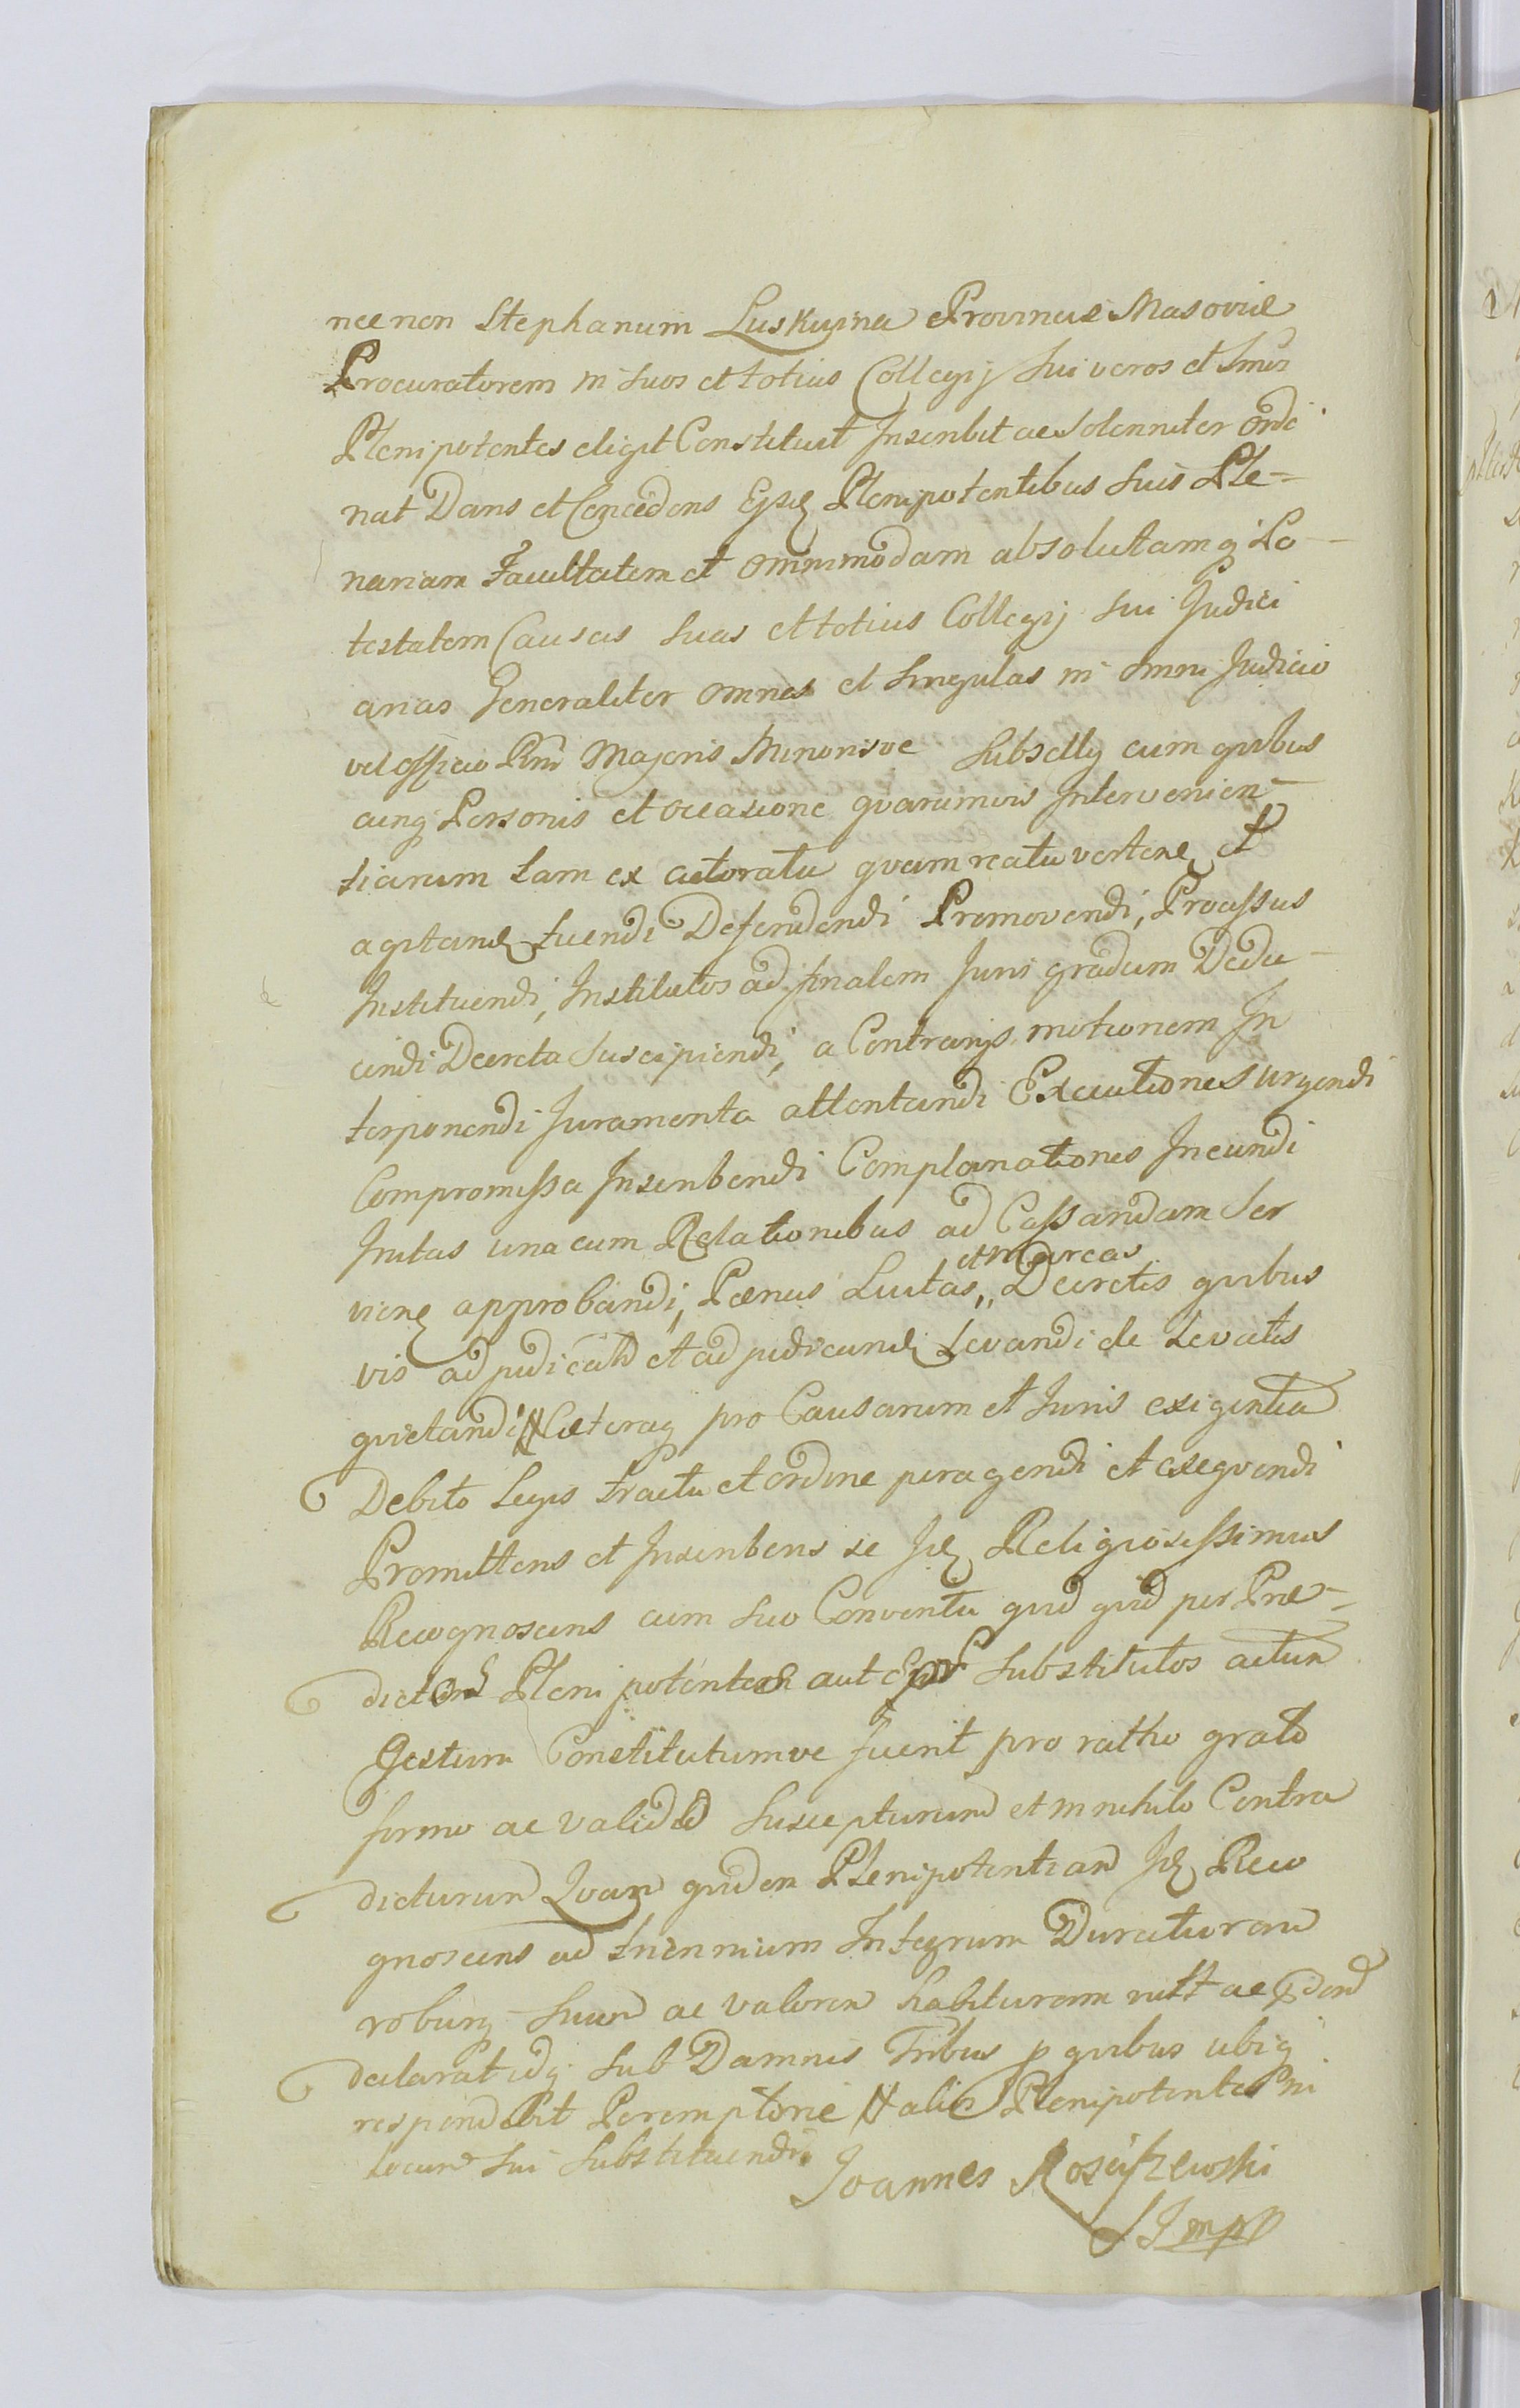 necnon Stephanum Luskuina Provinciæ Masoviæ
Procuratorem in suos et totius Collegij sui veros et
Plenipotentes eligit Constituit Inscribit ac Solenniter ordi
nat Dans et Concedens Plenipotentibus suis Ple-
nariam Facultatem et omnimodam absolutamq Po-
testatem Causas suas et totius Collegij sui Judici
arias Generaliter omnes et singulas in omni Judicio
vel officio Regni Majoris Minorisve Subsellij cum quibus
cunq Personis et occasione quarumvis Intervenien-
tiarum tam ex actoratu quam reatu verten et
agitand tuendi Defendendi Promovendi, Processus
Instituendi, Institutos ad finalem Juris gradum Dedu-
cendi Decreta suscipiendi, a Contrarijs motionem In
terponendi Juramenta attentandi Executiones urgendi
Compromissa Inscribendi Complanationes Ineundi
Initas una cum Relationibus ad Cassandam Ser
vien approbandi, Pænas Luitas,, et marcas Decretis quibus
vis adjudicatas et adjudicand Levandi de Levatis
quietandi Cæteraq pro Causarum et Juris exigentia
Debito Legis tractu et ordine peragendi et exequendi
Promittens et Inscribens se Religiosissimus
Recognoscens cum suo Conventu quid quid per Præ-
dictos Plenipotentes aut Substitutos actum
Gestum Constitutumve fuerit pro ratho grato
firmo ac valido suscepturum et in nihilo Contra
dicturum Quam quidem Plenipotentiam Reco
gnoscens ad triennium Integrum Duraturam
roburq suum ac valorem habituram
declarat idq sub Damnis Tribus p quibus ubiq
respondebit Peremptorie Plenipotentes in
locum sui substituendi
Joannes Rościszewski
SJ mp